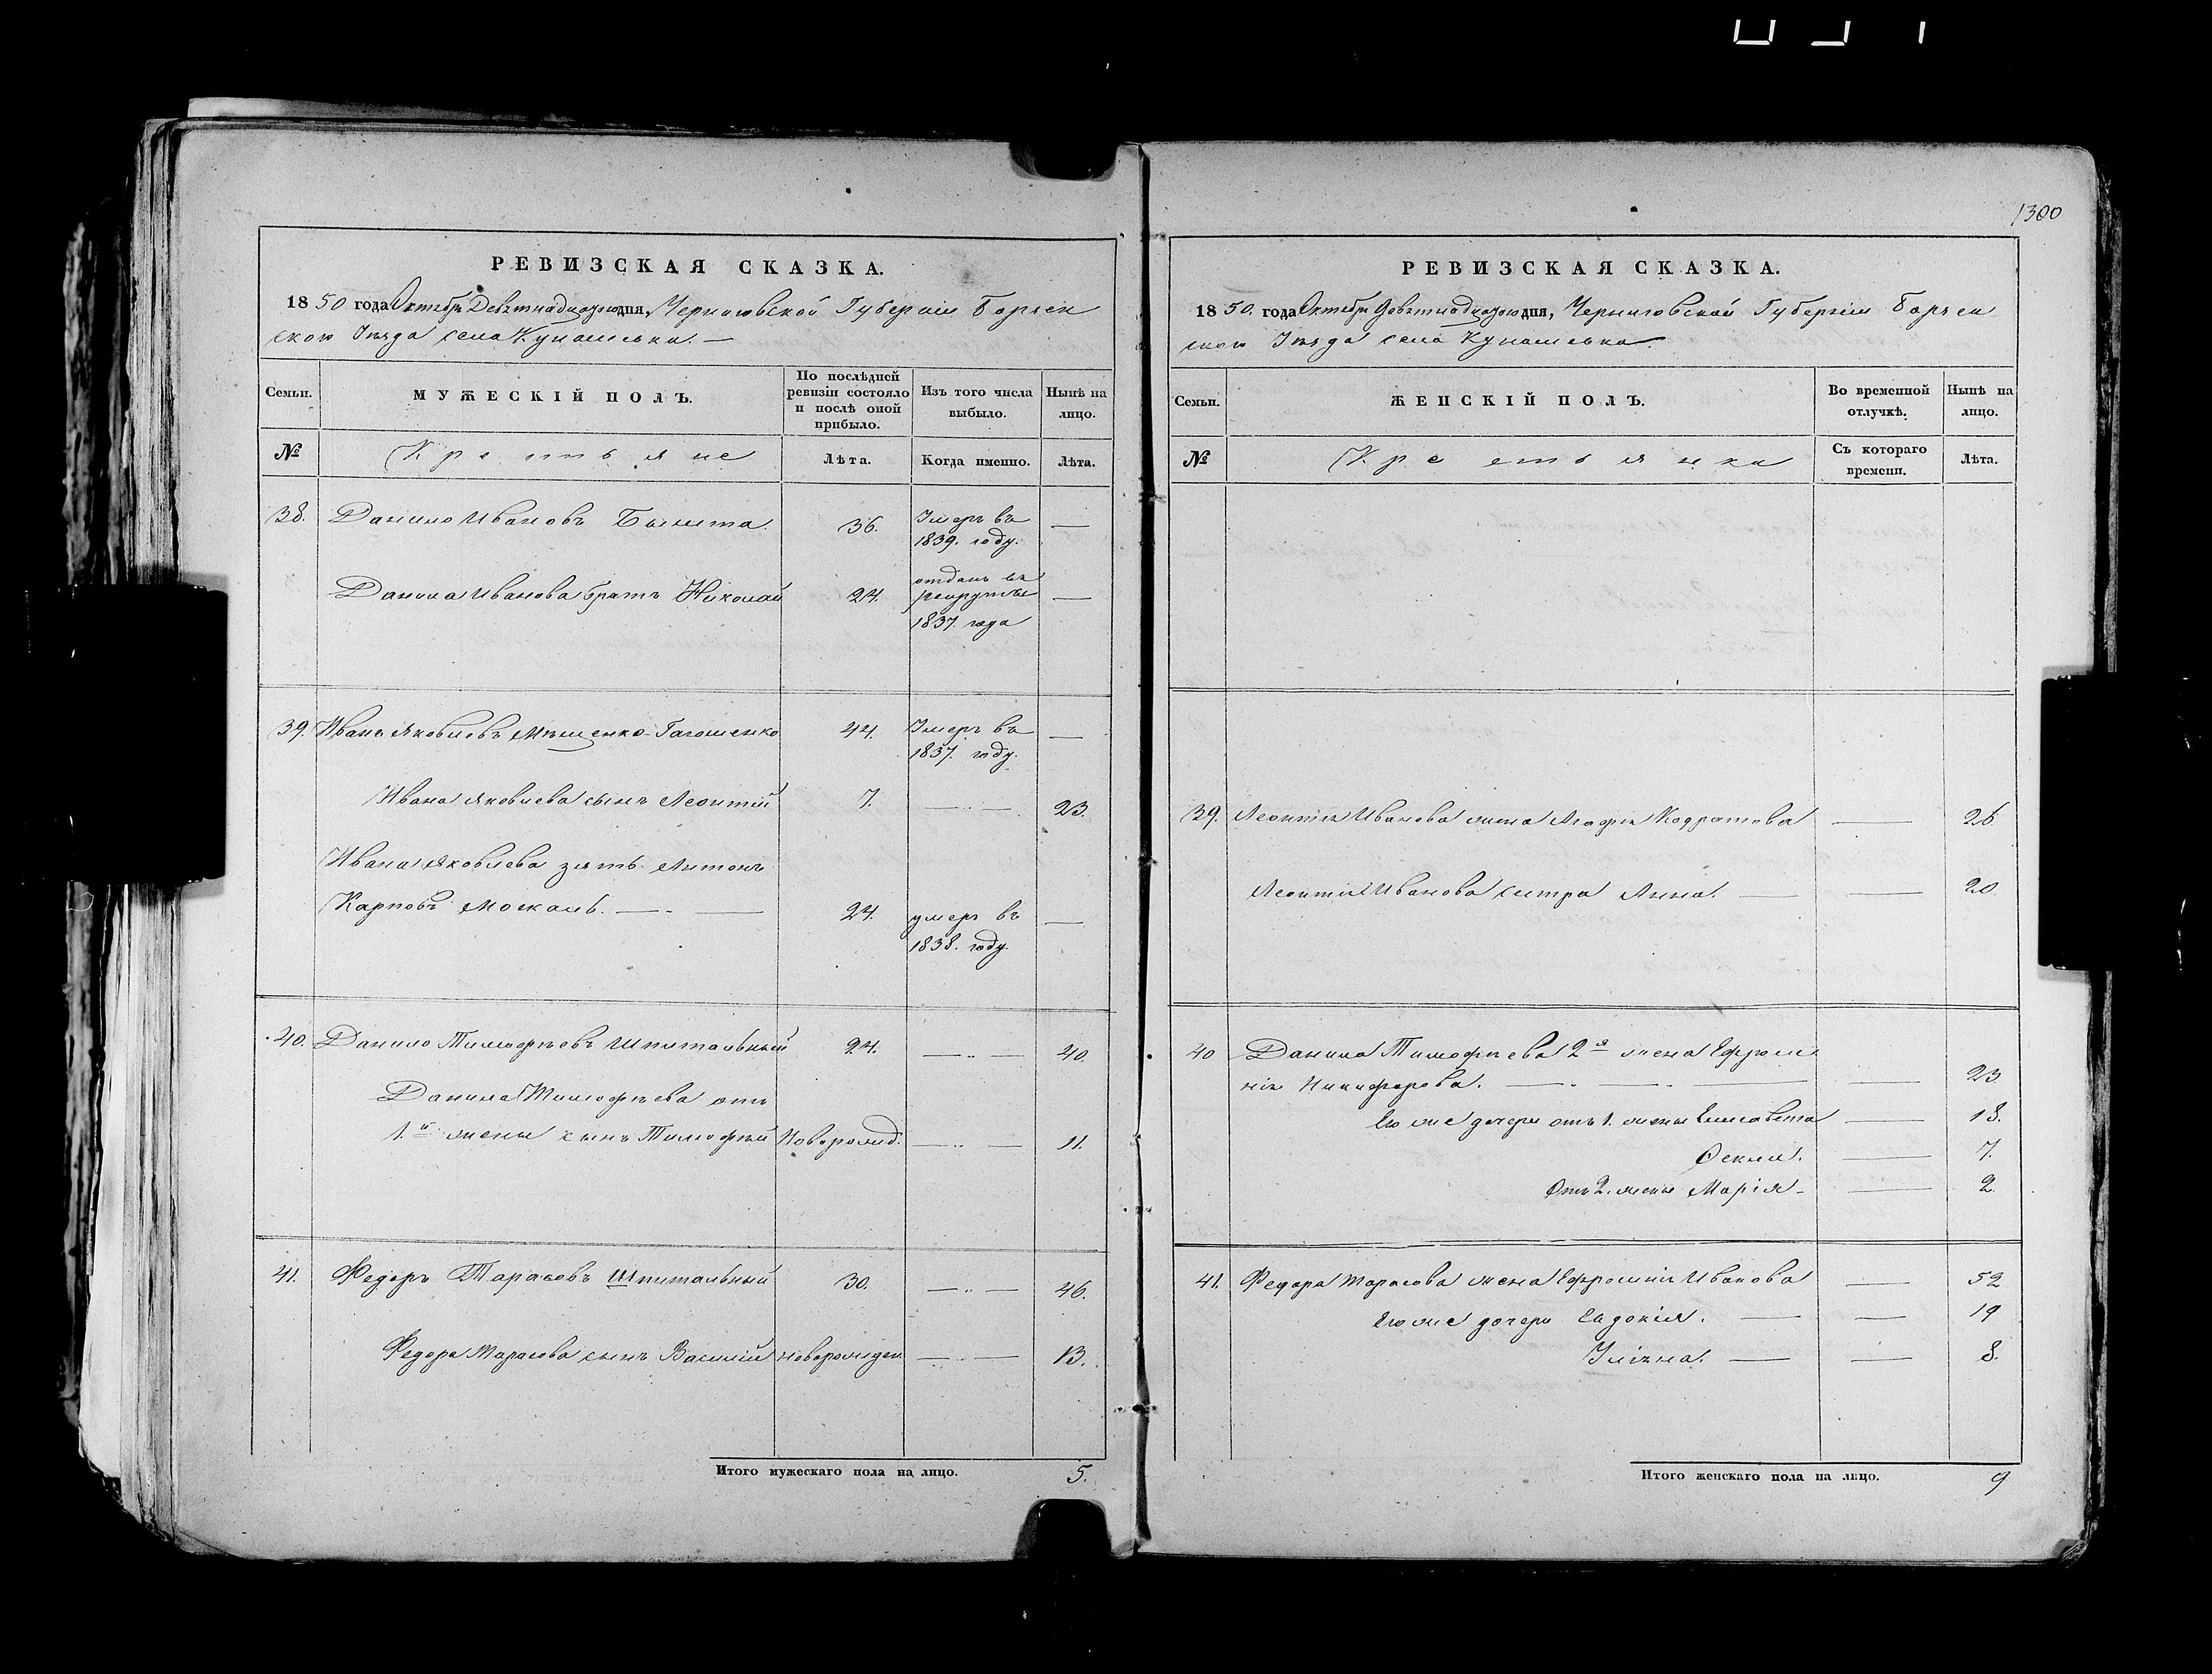 1300
РЕВИЗСКАЯ СКАЗКА.
1850 года Октября Девятнадцатого дня, Черниговской Губерніи Борзен
ского Уѣзда села Кунашевка. —
Семьи.
МУЖЕСКІЙ ПОЛЪ.
По послѣдней ревизіи состояло и послѣ оной прибыло.
Изъ того числа выбыло.
Нынѣ на лицо.
№
Крестьяне
Лѣта.
Когда именно.
Лѣта.
38. Данило Ивановъ 36. Умеръ въ —
1839. году.
Данила Иванова братъ Николай 24. отданъ въ —
рекруты
1837. года
39. Иванъ Яковлевъ Мищенко-Гагошенко 44. Умеръ въ —
1837. году.
Ивана Яковлева сынъ Леонтій 7. — 23.
Ивана Яковлева зять Антонъ
Карповъ Москаль. — 24. умеръ въ —
1838. году.
40. Данило Тимофѣевъ Шпитальный 24. — 40.
Данила Тимофѣева отъ
1.й жены сынъ Тимофѣй Новорожд. — 11.
41. Федоръ Тарасовъ Шпитальный 30. — 46.
Федора Тарасова сынъ Василій новорожден. — 13.
Итого мужескаго пола на лицо. 5.
РЕВИЗСКАЯ СКАЗКА.
1850. года Октября Девятнадцатого дня, Черниговской Губерніи Борзен
ского Уѣзда села Кунашевка.
Семьи.
ЖЕНСКІЙ ПОЛЪ.
Во временной отлучкѣ.
Нынѣ на лицо.
№
Крестьянки
Съ котораго времени.
Лѣта.
39. Леонтія Иванова жена Агафія Кодратова — 26
Леонтія Иванова сестра Анна. — 20
40 Данила Тимофѣева 2я жена Ефроси
нія Никифорова. — 23
Его же дочери отъ 1. жены Елисавета — 18.
Фекла. — 7.
Отъ 2. жены Марія — 2.
41. Федора Тарасова жена Ефросинія Иванова — 52
Его же дочери Евдокія. — 19
Уліяна. — 8.
Итого женскаго пола на лицо. 9